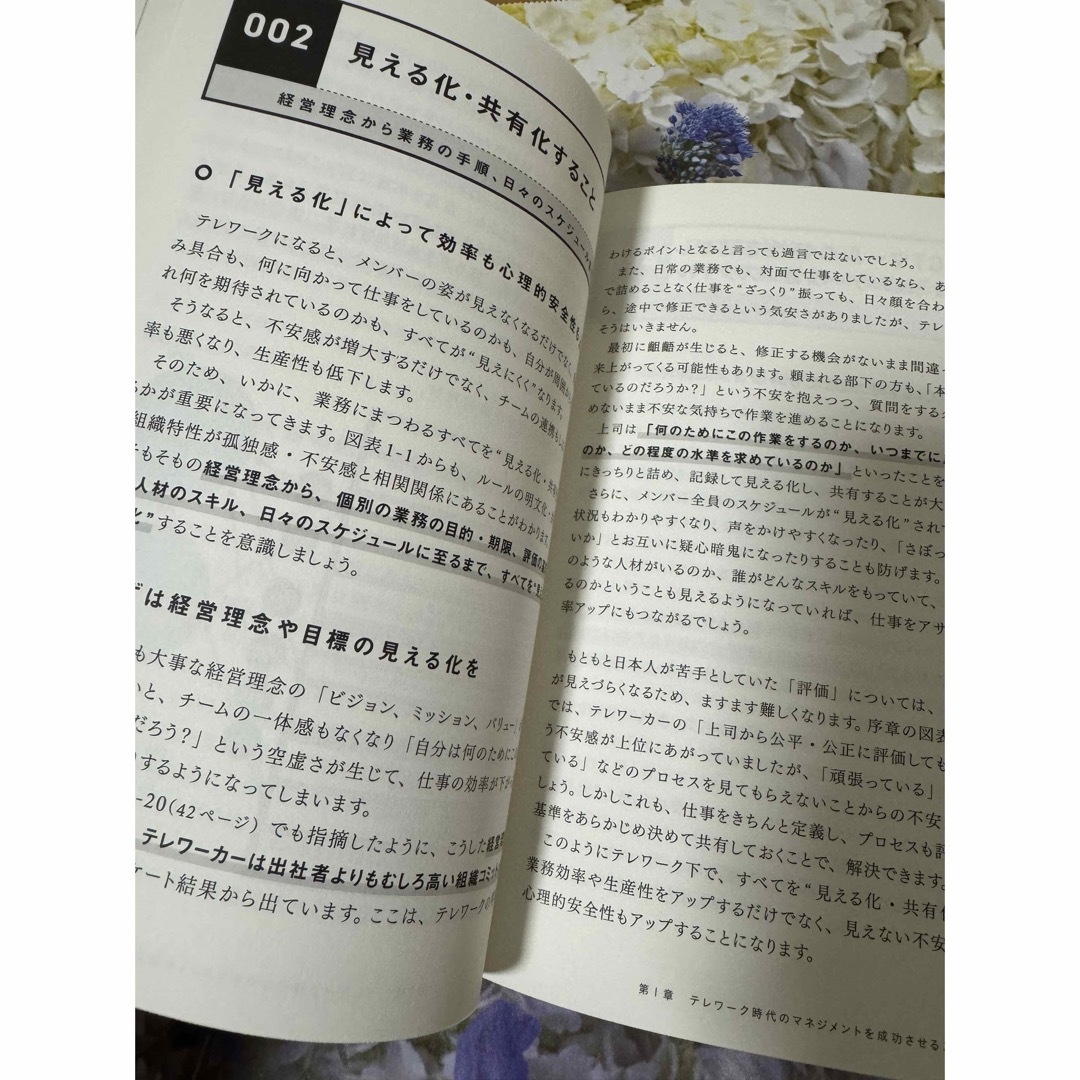 002
見える化・共有化すること
経営理念から業務の手順、日々のスケジュール
「見える化」によって効率も心理的安全性も
テレワークになると、メンバーの姿が見えなくなるだけでなく、
み具合も、何に向かって仕事をしているのかも、自分が周囲か
れ何を期待されているのかも、すべてが“見えにくく”なります。
そうなると、不安感が増大するだけでなく、チームの連携も
率も悪くなり、生産性も低下します。
そのため、いかに、業務にまつわるすべてを“見える化・共有
るかが重要になってきます。図表1-1からも、ルールの明文化・
組織特性が孤独感・不安感と相関関係にあることがわかります。
そもそもの経営理念から、個別の業務の目的・期限、評価の基
人材のスキル、日々のスケジュールに至るまで、すべてを“見
化”することを意識しましょう。
ずは経営理念や目標の見える化を
も大事な経営理念の「ビジョン、ミッション、バリュー」
いと、チームの一体感もなくなり「自分は何のためにこ
だろう？」という空虚さが生じて、仕事の効率が下が
りするようになってしまいます。
-20(42ページ) でも指摘したように、こうした経営
テレワーカーは出社者よりもむしろ高い組織コミッ
ケート結果から出ています。ここは、テレワークの
わけるポイントとなると言っても過言ではないでしょう。
また、日常の業務でも、対面で仕事をしているなら、あ
で詰めることなく仕事を“ざっくり”振っても、日々顔を合わ
ら、途中で修正できるという気安さがありましたが、テレ
そうはいきません。
最初に齟齬が生じると、修正する機会がないまま間違
来上がってくる可能性もあります。頼まれる部下の方も、「本
ているのだろうか？」という不安を抱えつつ、質問をする
めないまま不安な気持ちで作業を進めることになります。
上司は「何のためにこの作業をするのか、いつまでに
のか、どの程度の水準を求めているのか」といったことを
にきっちりと詰め、記録して見える化し、共有することが大
さらに、メンバー全員のスケジュールが“見える化”されて
状況もわかりやすくなり、声をかけやすくなったり、「さぼっ
いか」とお互いに疑心暗鬼になったりすることも防げます。
のような人材がいるのか、誰がどんなスキルをもっていて、
るのかということも見えるようになっていれば、仕事をアサ
率アップにもつながるでしょう。
もともと日本人が苦手としていた「評価」については、
が見えづらくなるため、ますます難しくなります。序章の図表
では、テレワーカーの「上司から公平・公正に評価しても
う不安感が上位にあがっていましたが、「頑張っている」
ている」などのプロセスを見てもらえないことからの不安
しょう。しかしこれも、仕事をきちんと定義し、プロセスも評
基準をあらかじめ決めて共有しておくことで、解決できます。
このようにテレワーク下で、すべてを“見える化・共有化
業務効率や生産性をアップするだけでなく、見えない不安
心理的安全性もアップすることになります。
第1章 テレワーク時代のマネジメントを成功させる